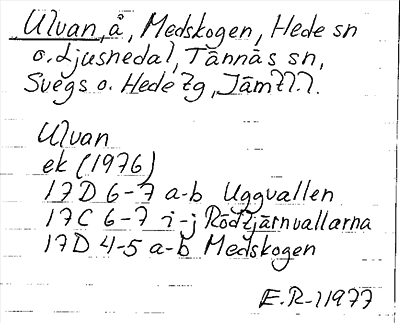 Ulvan, å, Medskogen, Hede sn
o. Ljusnedal, Tännäs sn,
Svegs o. Hede tg, Jämtl.l.
Ulvan
ek (1976)
17D 6-7 a-b Uggvallen
17C 6-7 i-j Rödtjärnvallarna
17D 4-5 a-b Medskogen
E.R-1977